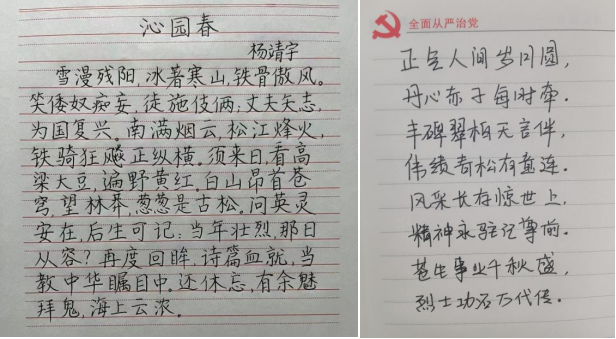 沁园春
杨靖宇
雪漫残阳,冰著寒山,铁骨傲风。
笑倭奴痴妄,徒施伎俩;丈夫矢志,
为国复兴。南满烟云,松江烽火,
铁骑狂飚正纵横。须来日,看高
梁大豆,遍野黄红。白山昂首苍
穹,望林莽,葱葱是古松。问英灵
安在,后生可记:当年壮烈,那日
从容?再度回眸,诗篇血就,当
教中华瞩目中。还休忘,有余魅
拜鬼,海上云浓。
全面从严治党
正气人间岁月圆,
丹心赤子每时牵.
丰碑翠柏无言伴,
伟绩青松有直连.
风采长存惊世上,
精神永驻记尊前.
苍生事业千秋盛,
烈士功名万代传.